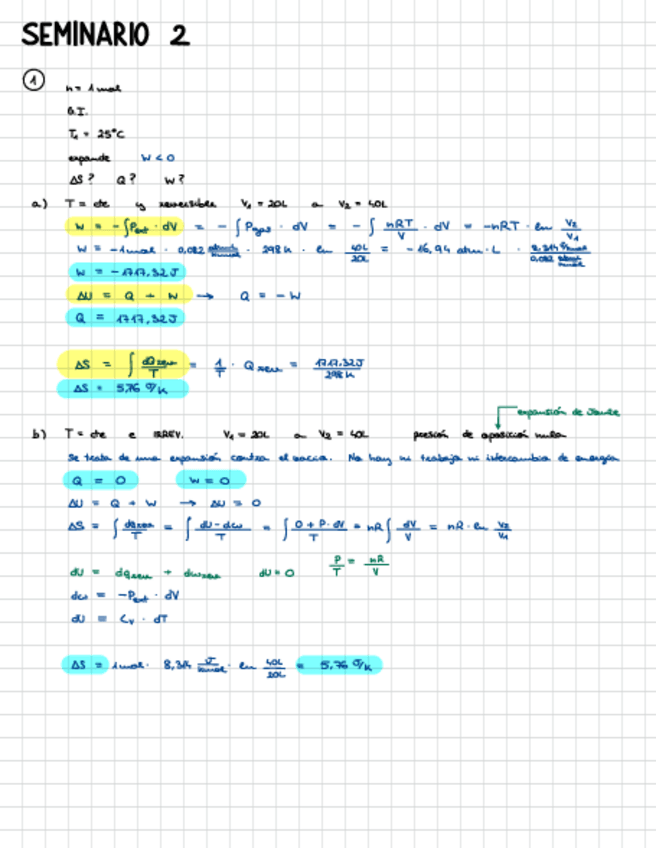 SEMINARIO 2
1
n = 1 mol
G.I.
T₁ = 25°C
expande W < 0
ΔS? Q? W?
a) T = cte y reversible V₁ = 20L a V₂ = 40L
W = -∫Pext · dV = -∫Pgas · dV = -∫ nRT/V · dV = -nRT · ln V₂/V₁
W = -1mol · 0,082 · 298K · ln 40L/20L = -16,94 atm·L ·
W = -1717,32J
ΔU = Q + W → Q = -W
Q = 1717,32J
ΔS = ∫ dQrev/T = 1/T · Qrev = 1717,32J/298K
ΔS = 5,76 J/K
expansión de Joule
b) T = cte e IRREV. V₁ = 20L a V₂ = 40L presión de oposición nula
Se trata de una expansión contra el vacío. No hay ni trabajo ni intercambio de energía
Q = 0 W = 0
ΔU = Q + W → ΔU = 0
ΔS = ∫ dQrev/T = ∫ dU-dW/T = ∫ 0+P·dV/T = nR∫ dV/V = nR · ln V₂/V₁
dU = dQrev + dWrev dU = 0 P/T = nR/V
dW = -Pext · dV
dU = Cv · dT
ΔS = 1mol · 8,314 J/Kmol · ln 40L/20L = 5,76 J/K